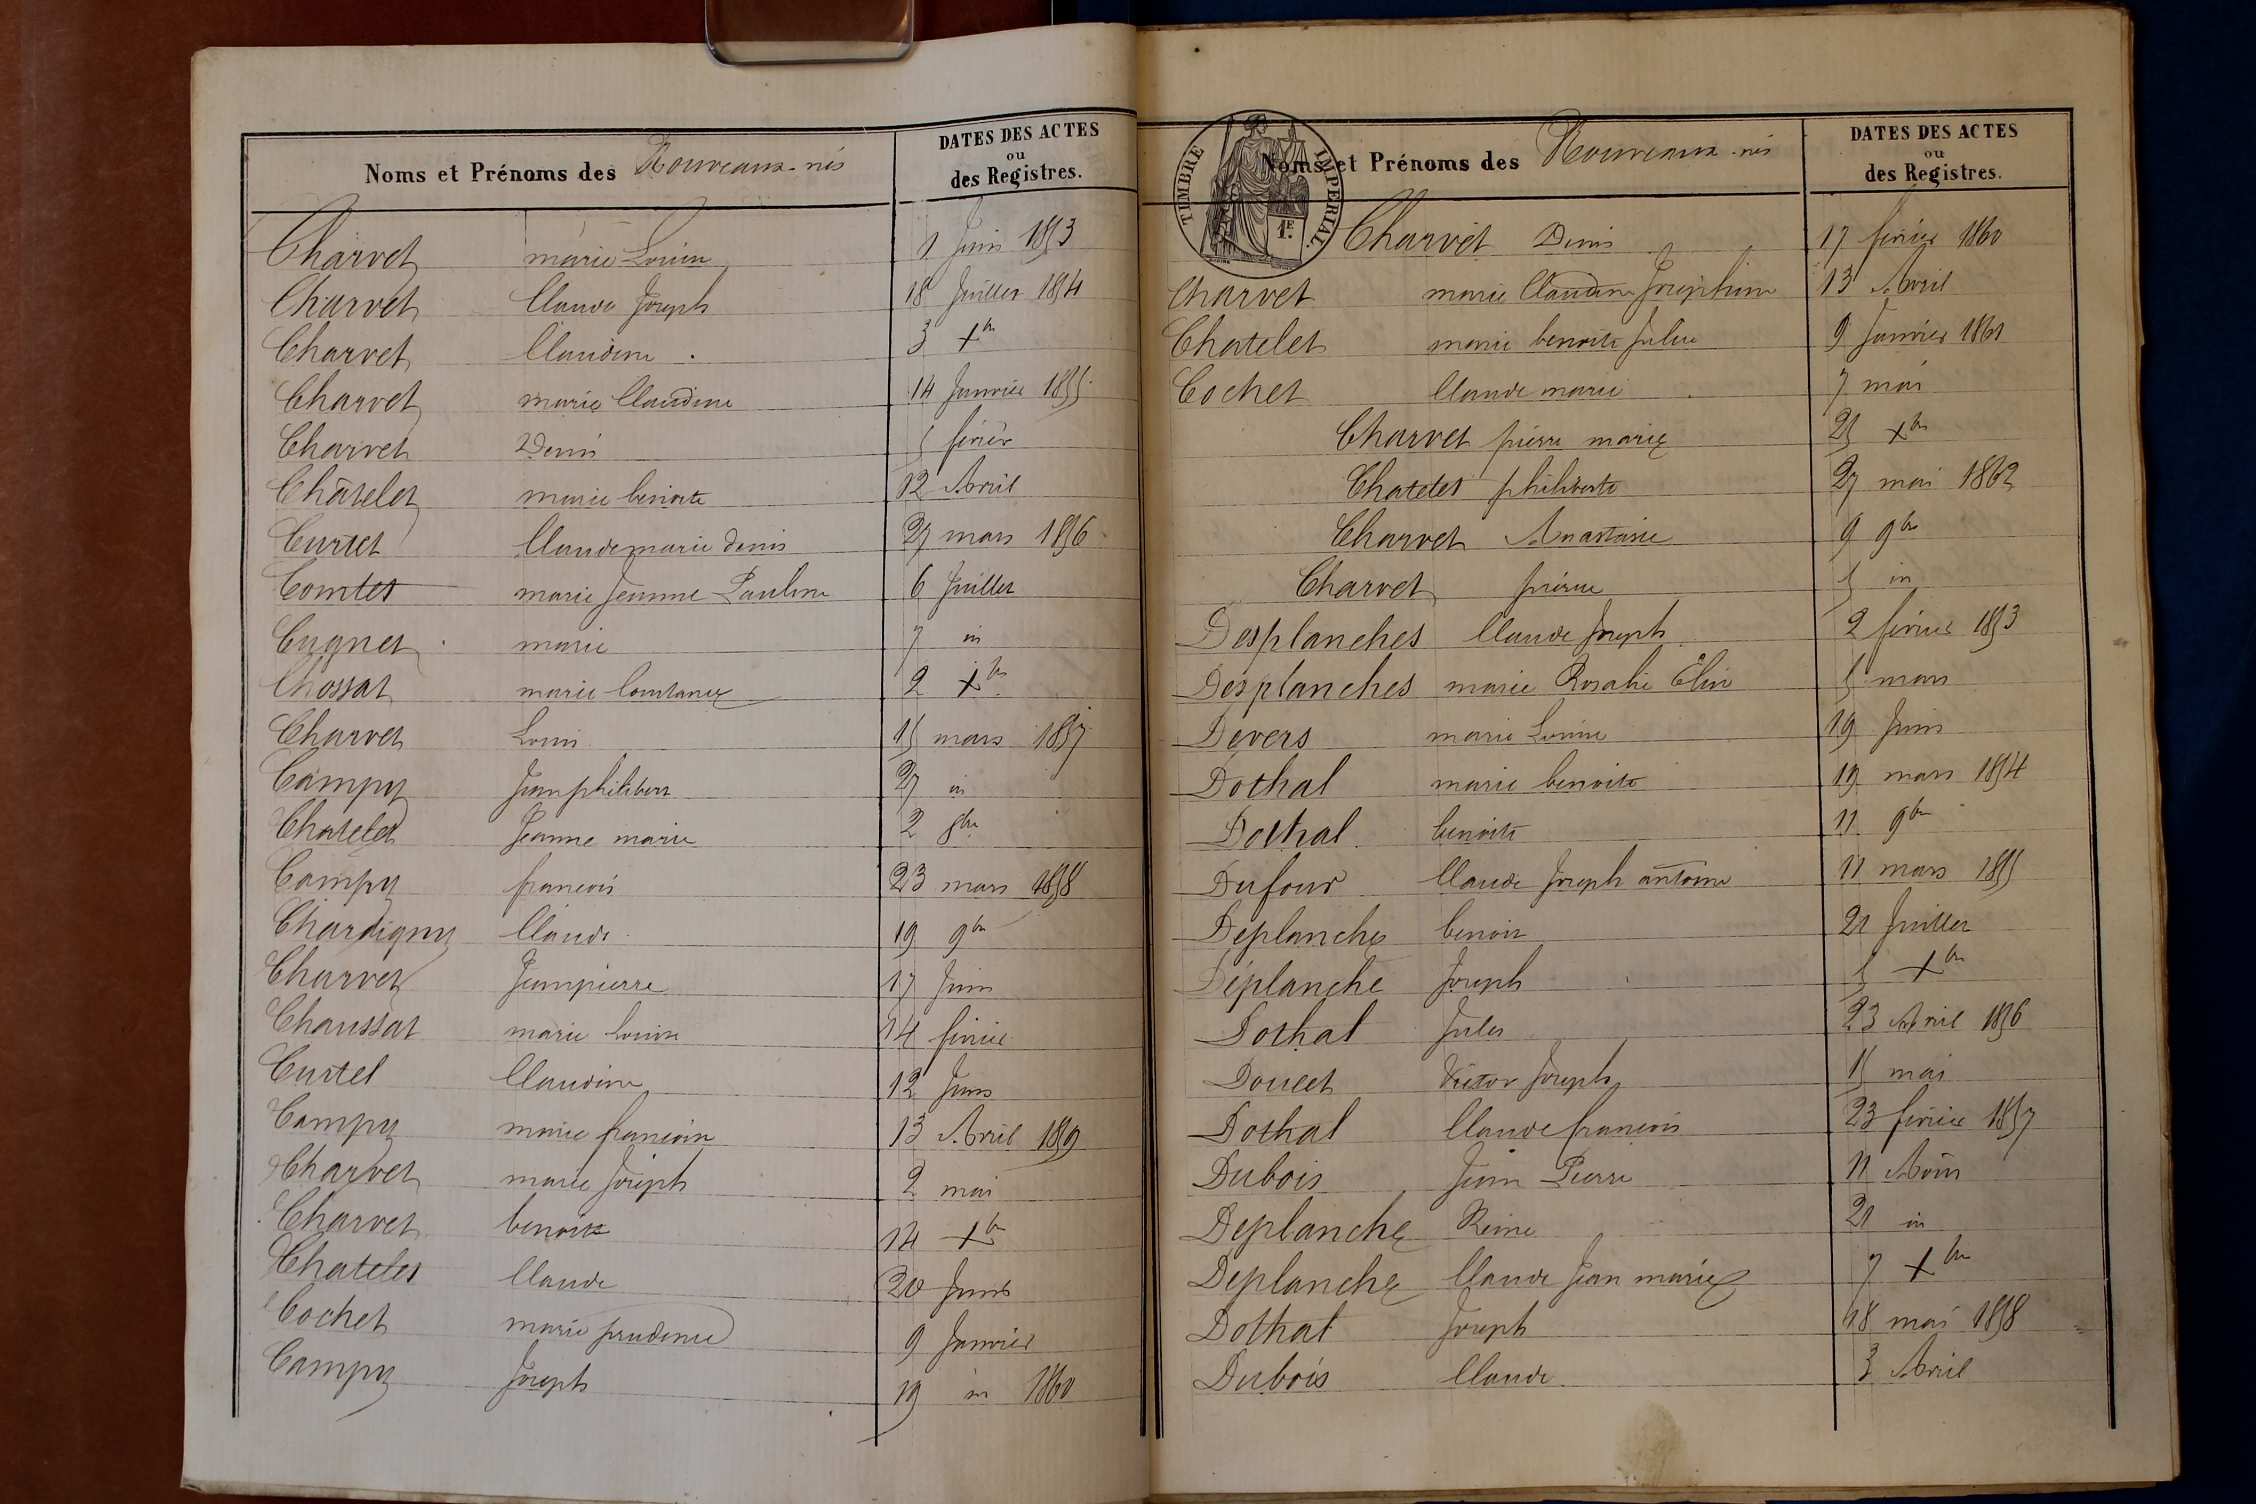 Noms et Prénoms des Nouveaux-nés
DATES DES ACTES
ou
des Registres.
Charvet marie Louise 1 Juin 1853
Charvet Claude Joseph 18 Juillet 1854
Charvet Claudine 3 Xbre
Charvet marie Claudine 14 Janvier 1855
Charvet Denis 5 févier
Châtelet marie benoite 12 Avril
Curtet Claude marie denis 27 mars 1856
Comtet marie Jeanne Pauline 6 Juillet
Cugnet marie 7 in
Chossat marie Constance 2 Xbre
Charvet Louis 15 mars 1857
Campy Jean philibert 27 in
Chatelet Jeanne marie 2 8bre
Campy francois 23 mars 1858
Chardigny Claude 19 9bre
Charvet Jean pierre 17 Juin
Chaussat marie Louise 14 févier
Curtel Claudine 12 Juin
Campy marie francoise 13 Avril 1859
Charvet marie Joseph 2 mai
Charvet benoite 14 Xbre
Chatelet Claude 20 Juin
Cochet marie prudence 9 Janvier
Campy Joseph 19 in 1860
TIMBRE IMPERIAL.
1E.
Noms et Prénoms des Nouveaux-nés
DATES DES ACTES
ou
des Registres.
Charvet Denis 17 févier 1860
Charvet marie Claudine Joséphine 13 Avril
Chatelet marie benoite Julie 9 Janvier 1861
Cochet Claude marie 7 mai
Charvet pierre marie 25 Xbre
Chatelet philiberte 27 mai 1862
Charvet Anastasie 9 9bre
Charvet pierre 5 in
Desplanches Claude Joseph 2 févier 1853
Desplanches marie Rosalie Elise 5 mars
Devers marie Louise 19 Juin
Dothal marie benoite 19 mars 1854
Dothal benoite 11 9bre
Dufour Claude Joseph antoine 11 mars 1855
Deplanche benoit 21 Juillet
Déplanche Joseph 5 Xbre
Dothal Jules 23 Avril 1856
Doucet Victor Joseph 15 mai
Dothal Claude francois 23 févier 1857
Dubois Jean Pierre 11 Août
Deplanche Reine 21 in
Deplanche Claude Jean marie 7 Xbre
Dothal Joseph 18 mai 1858
Dubois Claude 3 Avril